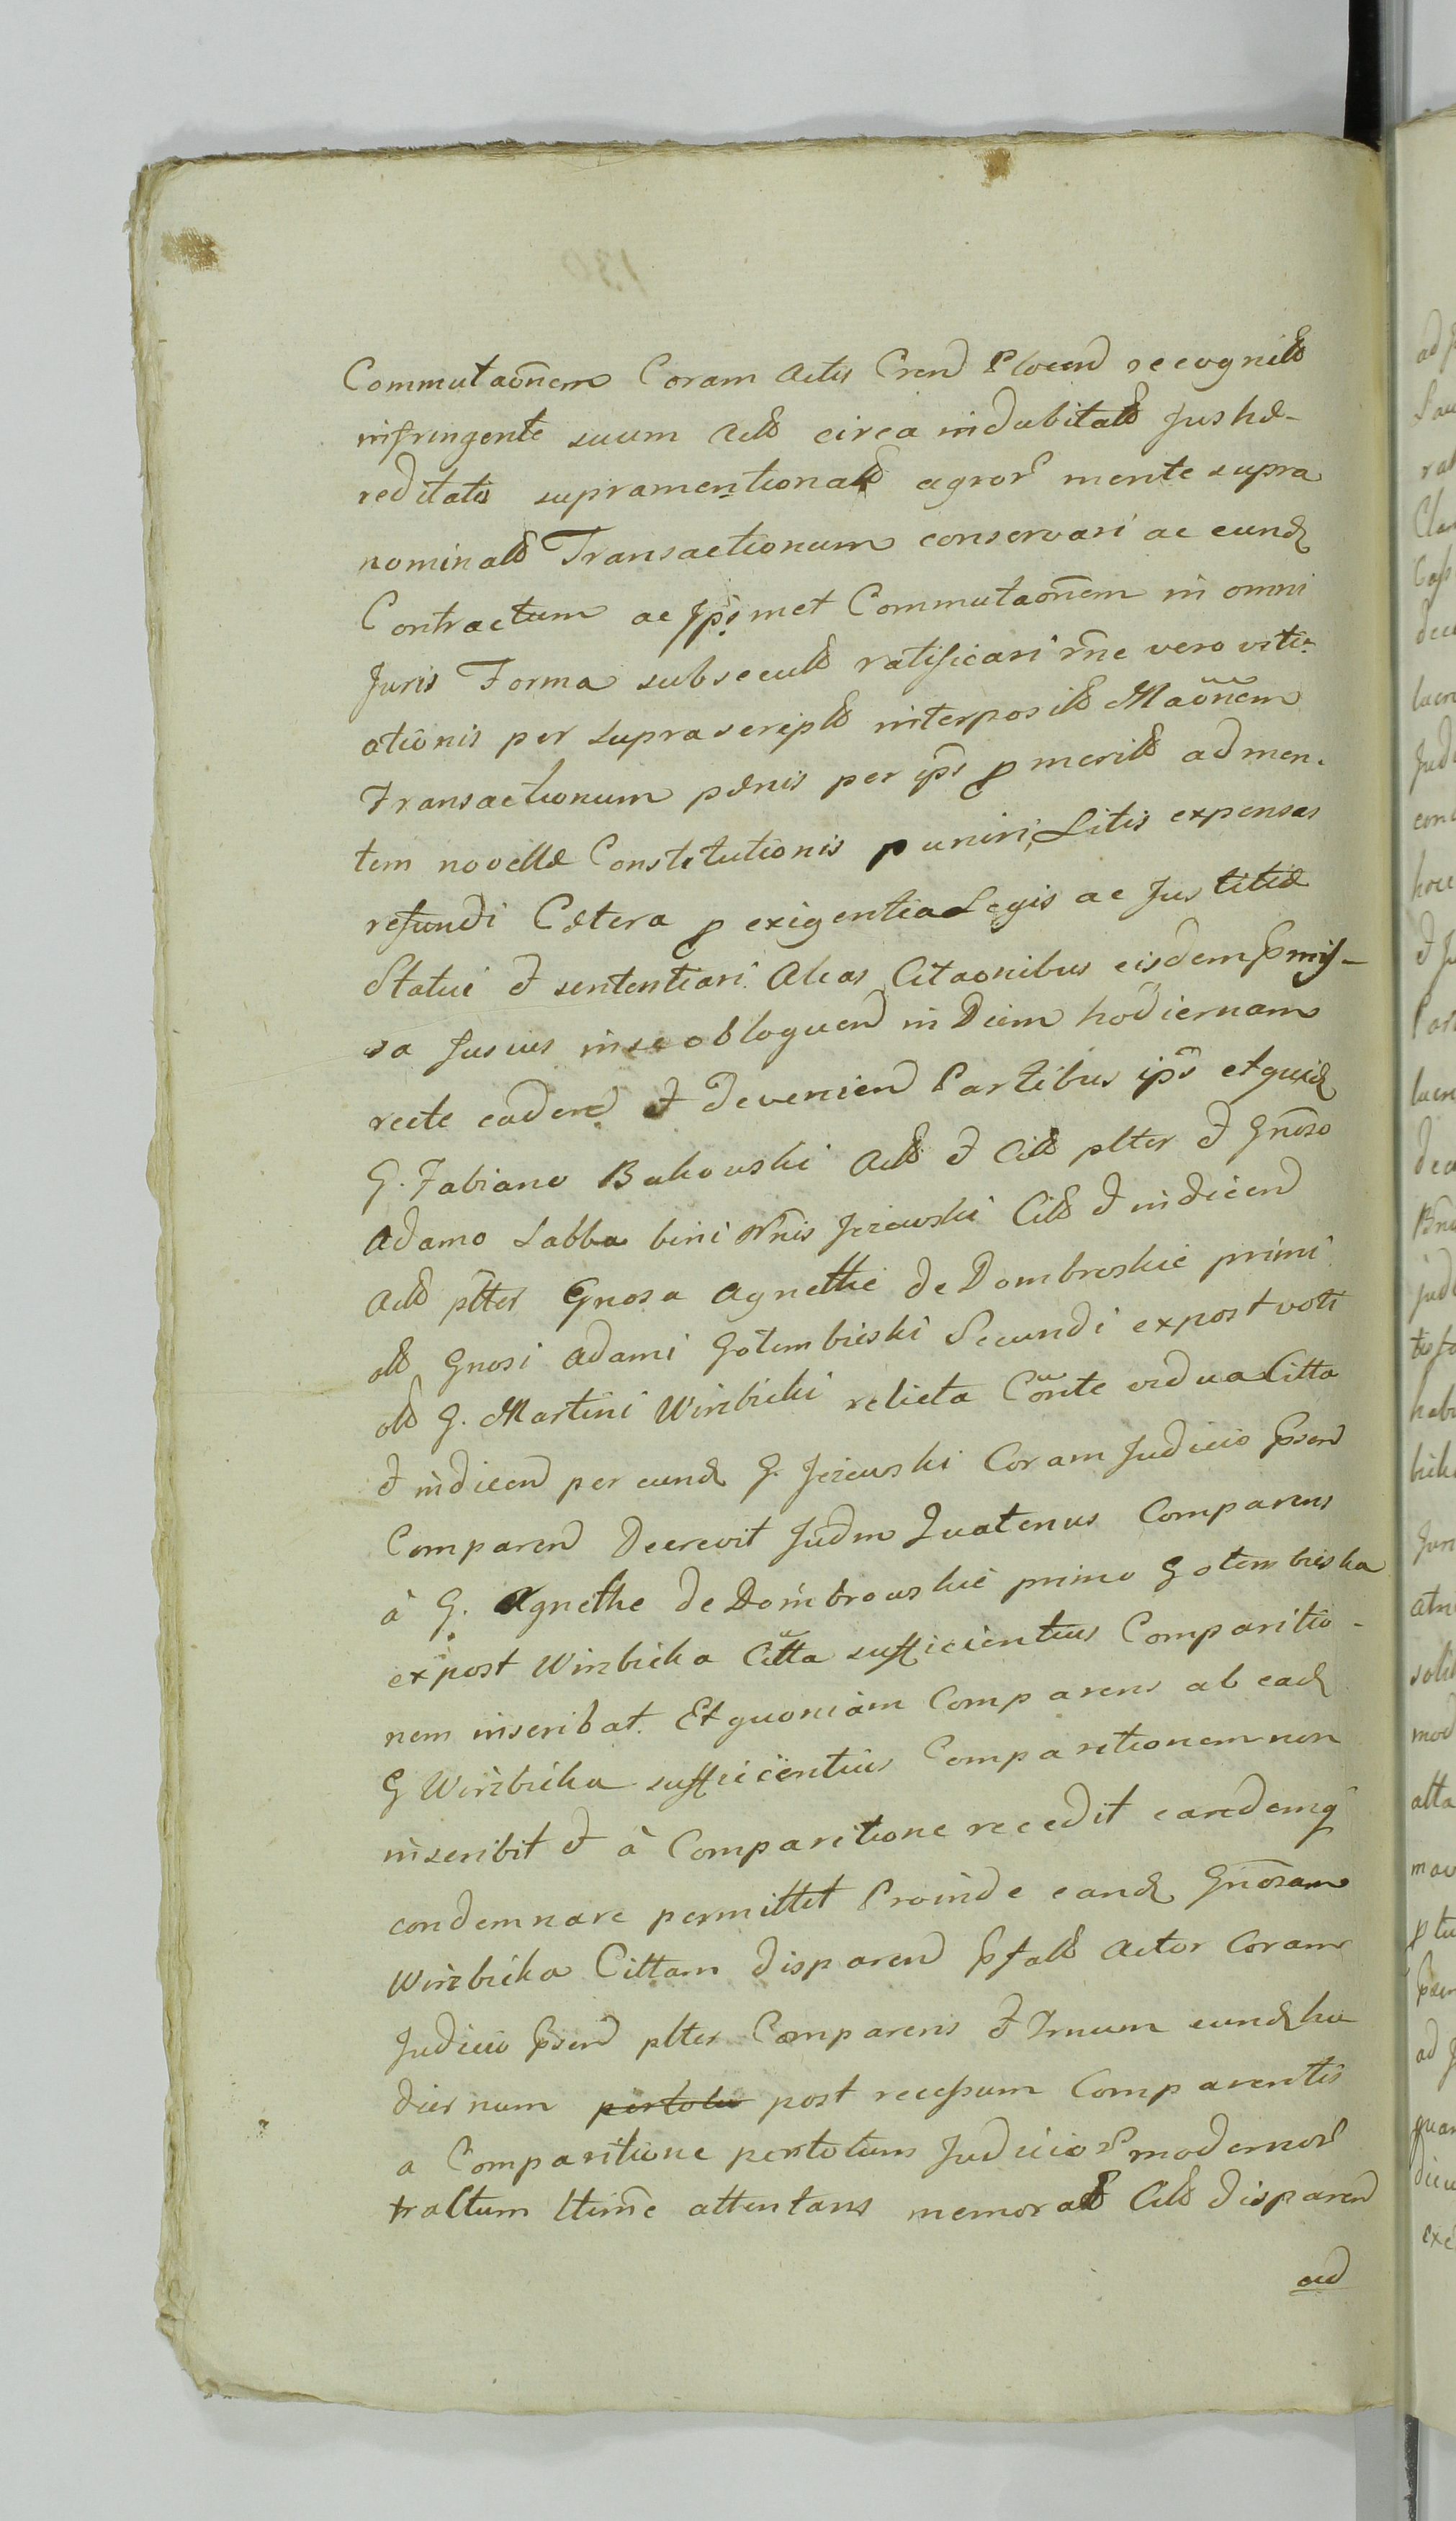 Commutaōnem Coram Actis Cren Plocen recognitt
infringente suum Actt circa indubitatt Jus hæ-
reditatis supramentionatt agror mente supra
nominatt Transactionum conservari ac eund
Contractum ac Ips̄met Commutaōnem in omni
Juris Forma subsecutt ratificari rn̄e vero
ationis per suprascriptt interpositt Maōnem
Transactionum pænis per ips̄ p meritt ad men-
tem novellæ Constitutionis puniri, Litis expensas
refundi Cætera p exigentia Legis ac Justitiæ
Statui et sententiari. Aleas Citaonibus eisdem præmis-
sa fusius in se obloquen in Diem hodiernam
recte caden et devenien Partibus ips̄ et quid
G. Fabiano Bukowski Actt et Citt plter et Gnōso
Adamo Labba bini Nn̄is Jezewski Citt et indicen
Actt plter Gnosa Agnethe de Dombroskie primi
ott Gnosi Adami Gotembieski Secundi expost voti
ott G. Martini Wirzbicki relicta Cōnte vidua Citta
et indicen per eund G. Jezewski Coram Judicio præsen
Comparen Decrevit Judm Quatenus Comparens
à G. Agnethe de Dombrowskie primo Gotembieska
expost Wirzbicka Citta sufficientius Comparitio-
nem inscribat. Et quoniam Comparens ab ead
G Wirzbicka sufficientius Comparitionem non
inscribit et à Comparitione recedit eandemq
condemnare permittit Proinde eand Gnōsam
Wirzbicka Cittam disparen præfatt Actor Coram
Judicio præsen plter Comparens et Trnum eund ho
diernum pertotu post recessum Comparentis
a Comparitione pertotum Judicior modernor
tractum ltime attentans memoratt Citt disparen
ad
130